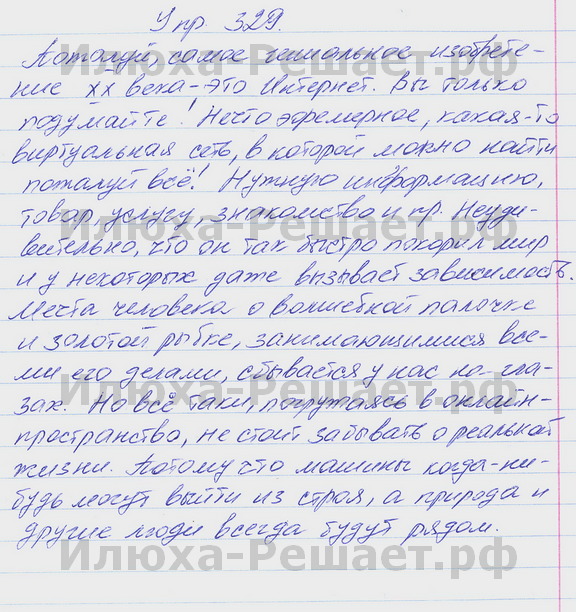 Упр. 329.
Пожалуй, самое гениальное изобрете-
ние XX века-это Интернет. Вы только
подумайте! Нечто эфемерное, какая-то
виртуальная сеть, в которой можно найти
пожалуй всё! Нужную информацию,
товар, услугу, знакомство и пр. Неуди-
вительно, что он так быстро покорил мир
и у некоторых даже вызывает зависимость.
Мечта человека о волшебной палочке
и золотой рыбке, занимающимися все-
ми его делами, сбывается у нас на гла-
зах. Но всё таки, погружаясь в онлайн-
пространство, не стоит забывать о реальной
жизни. Потому что машины когда-ни-
будь могут выйти из строя, а природа и
другие люди всегда будут рядом.
Илюха-Решает.рф
Илюха-Решает.рф
Илюха-Решает.рф
Илюха-Решает.рф